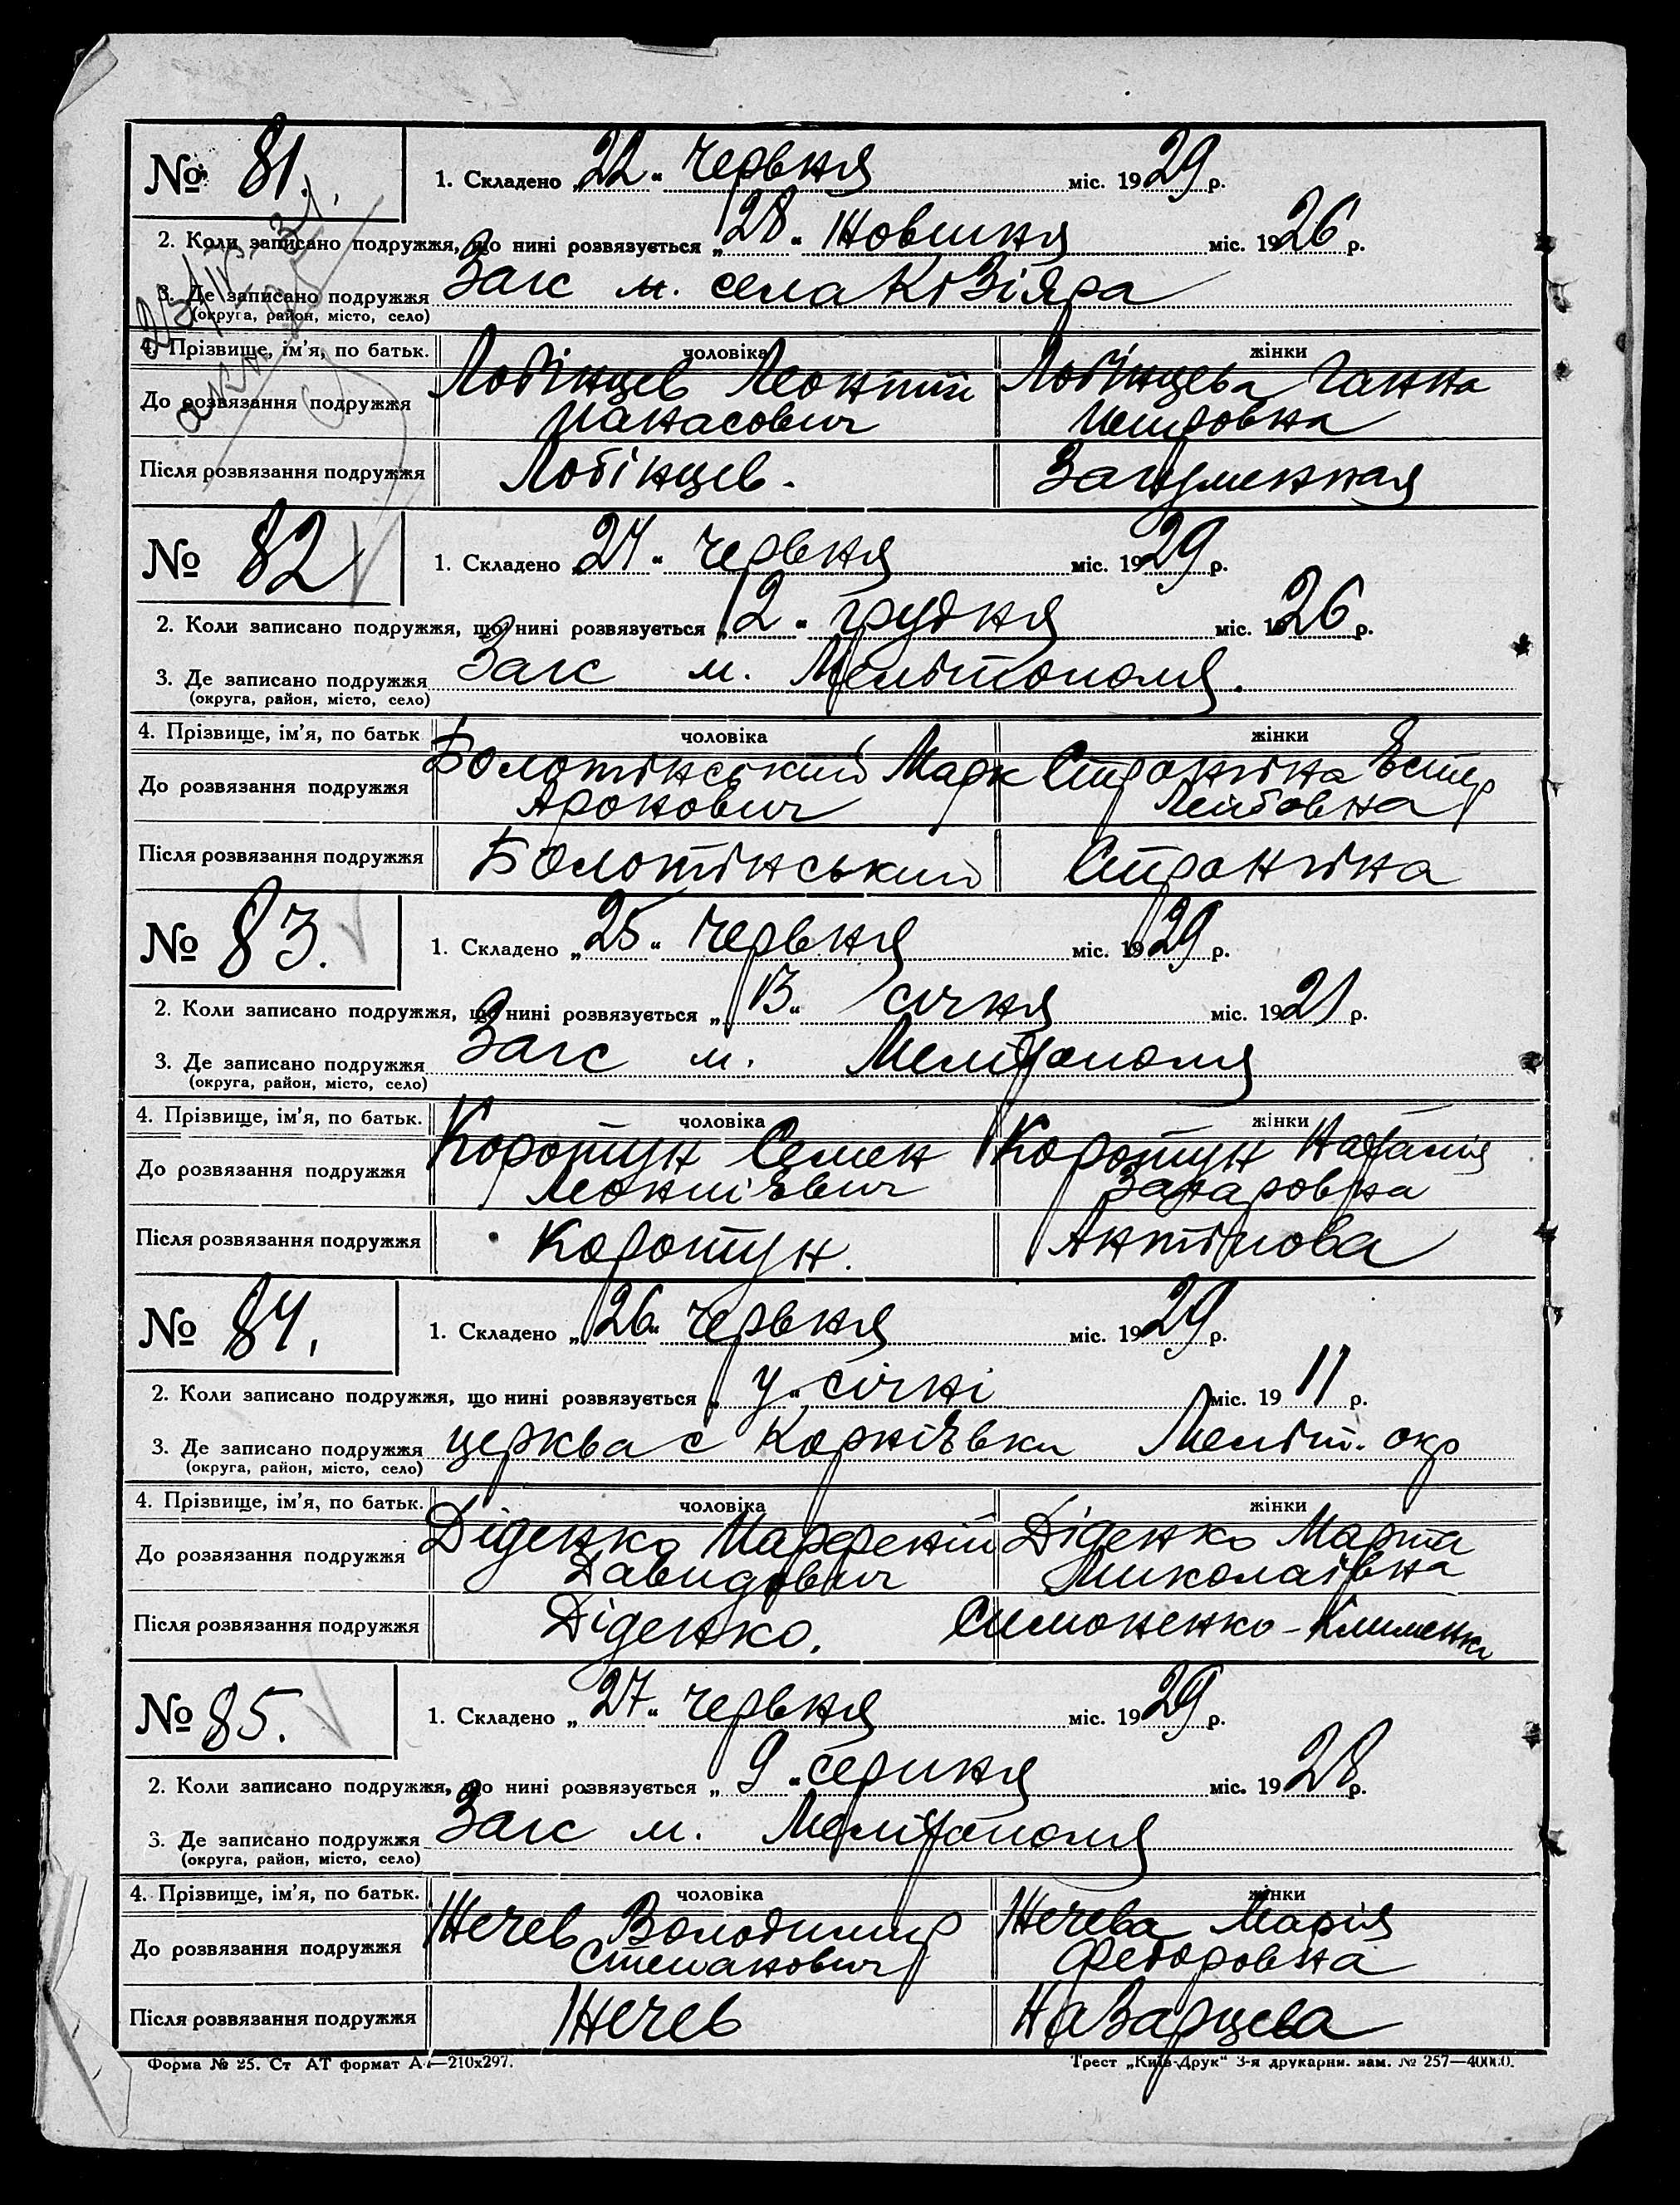 № 81.
1. Складено „22“ червня міс. 1929 р.
2. Коли записано подружжя, що нині розвязується „28“ Жовтня міс. 1926 р.
3. Де записано подружжя Загс м. села Кізіяра
(округа, район, місто, село)
4. Прізвище, ім'я, по батьк. чоловіка жінки
До розвязання подружжя Лобінцев Леонтій Лобінцева Ганна
Панасович Петровна
Після розвязання подружжя Лобінцев. Загуменная
№ 82
1. Складено „24“ червня міс. 1929 р.
2. Коли записано подружжя, що нині розвязується „12“ грудня міс. 1926 р.
3. Де записано подружжя Загс м. Мелітополя.
(округа, район, місто, село)
4. Прізвище, ім'я, по батьк чоловіка жінки
До розвязання подружжя Болотінський Марк Стронгіна Естер
Аронович Лейбовна
Після розвязання подружжя Болотінський Стронгіна
№ 83.
1. Складено „25“ червня міс. 1929 р.
2. Коли записано подружжя, що нині розвязується „13“ січня міс. 1921 р.
3. Де записано подружжя Загс м. Мелітополя
(округа, район, місто, село)
4. Прізвище, ім'я, по батьк. чоловіка жінки
До розвязання подружжя Коротун Семен Коротун Наталія
Леонтієвич Захаровна
Після розвязання подружжя Коротун. Антіпова
№ 84.
1. Складено „26“ червня міс. 1929 р.
2. Коли записано подружжя, що нині розвязується „у“ січні міс. 19 11 р.
3. Де записано подружжя церква с Корнієвки Меліт. окр
(округа, район, місто, село)
4. Прізвище, ім'я, по батьк. чоловіка жінки
До розвязання подружжя Діденко Парфеній Діденко Марта
Давидович Миколаївна
Після розвязання подружжя Діденко. Симоненко-Клименко
№ 85.
1. Складено „27“ червня міс. 1929 р.
2. Коли записано подружжя, що нині розвязується „9“ серпня міс. 1928 р.
3. Де записано подружжя Загс м. Мелітополя
(округа, район, місто, село)
4. Прізвище, ім'я, по батьк. чоловіка жінки
До розвязання подружжя Жечев Володимир Жечева Марія
Степанович Федоровна
Після розвязання подружжя Жечев Назарцева
Форма № 25. Ст АТ формат А4—210х297. Трест „Київ-Друк“ 3-я друкарня. зам. № 257—40000.